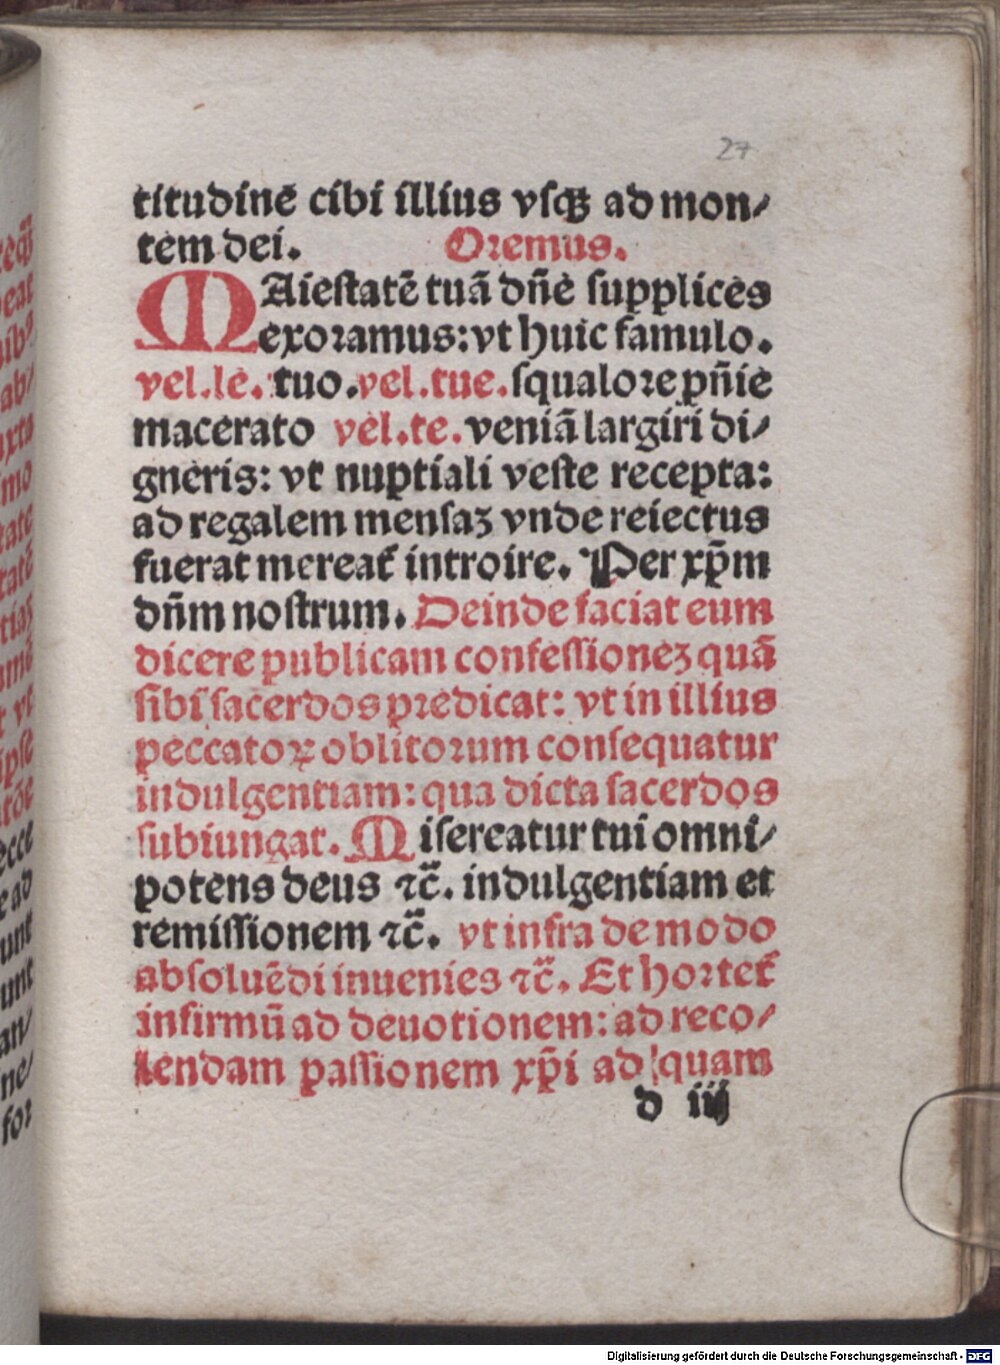 27
titudinē cibi illius vsqꝫ ad mon⸗
tem dei. Oremus.
MAiestatē tuā dn̄e supplices
exoramus: vt huic famulo.
vel.le. tuo. vel.tue. squalore pn̄ie
macerato vel.te. veniā largiri di⸗
gneris: vt nuptiali veste recepta:
ad regalem mensaꝫ vnde reiectus
fuerat mereat᷑ introire. Per xp̄m
dn̄m nostrum. Deinde faciat eum
dicere publicam confessioneꝫ quā
sibi sacerdos predicat: vt in illius
peccatoꝝ oblitorum consequatur
indulgentiam: qua dicta sacerdos
subiungat. Misereatur tui omni⸗
potens deus ⁊c̄. indulgentiam et
remissionem ⁊c̄. vt infra de modo
absoluēdi inuenies ⁊c̄. Et hortet᷑
infirmū ad deuotionem: ad reco⸗
lendam passionem xp̄i ad quam
d iiij
Digitalisierung gefördert durch die Deutsche Forschungsgemeinschaft - DFG